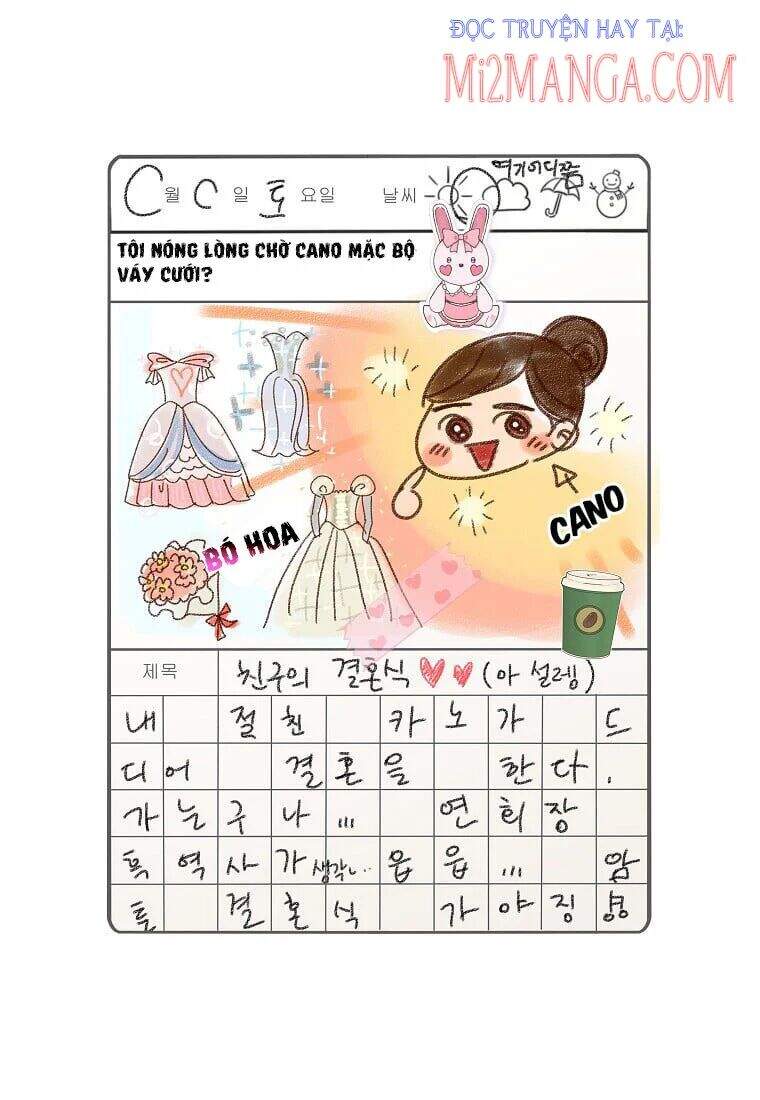 ĐỌC TRUYỆN HAY TẠI:
MI2MANGA.COM
여기어디쯤
C월 C일 토요일 날씨
TÔI NÓNG LÒNG CHỜ CANO MẶC BỘ
VÁY CƯỚI?
CANO
BÓ HOA
제목 친구의 결혼식 ♥♥ (아 설렘)
내 절친 카노가 드
디어 결혼을 한다.
가는구나... 연회장
흑역사가 생각나.. 읍읍... 암
튼 결혼식 가야징